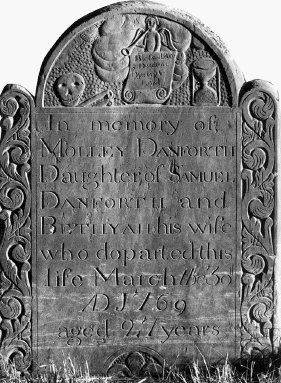 In memory of
MOLLEY DANFORTH
Daughter, of SAMUEL
DANFORTH and
BETHYAH his wife
who departed this
life March
AD
aged years